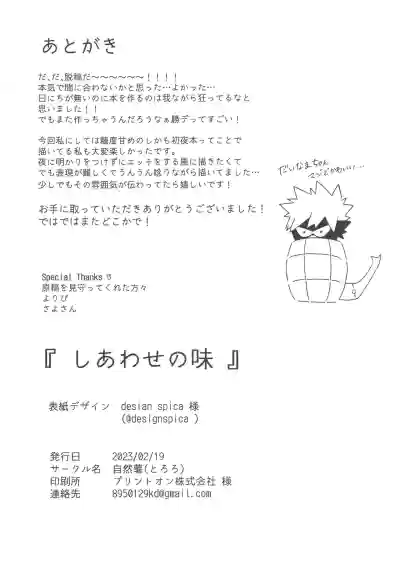 あとがき
だ、だ、脱稿だ〜〜〜〜〜〜！！！！
本気で間に合わないかと思った…よかった…
日にちが無いのに本を作るのは我ながら狂ってるなと
思いました！！
でもまた作っちゃうんだろうなぁ勝デってすごい！
今回私にしては糖度甘めのしかも初夜本ってことで
描いてる私も大変楽しかったです。
夜に明かりをつけずにエッチをする風に描きたくて
でも表現が難しくてうんうん唸りながら描いてました…
少しでもその雰囲気が伝わってたら嬉しいです！
お手に取っていただきありがとうございました！
ではではまたどこかで！
だいなまちゃん
Special Thanks♡
原稿を見守ってくれた方々
よりぴ
さよさん
『 しあわせの味 』
表紙デザイン desian spica 様
(@designspica )
発行日 2023/02/19
サークル名 自然薯(とろろ)
印刷所 プリントオン株式会社 様
連絡先 8950129kd@gmail.com